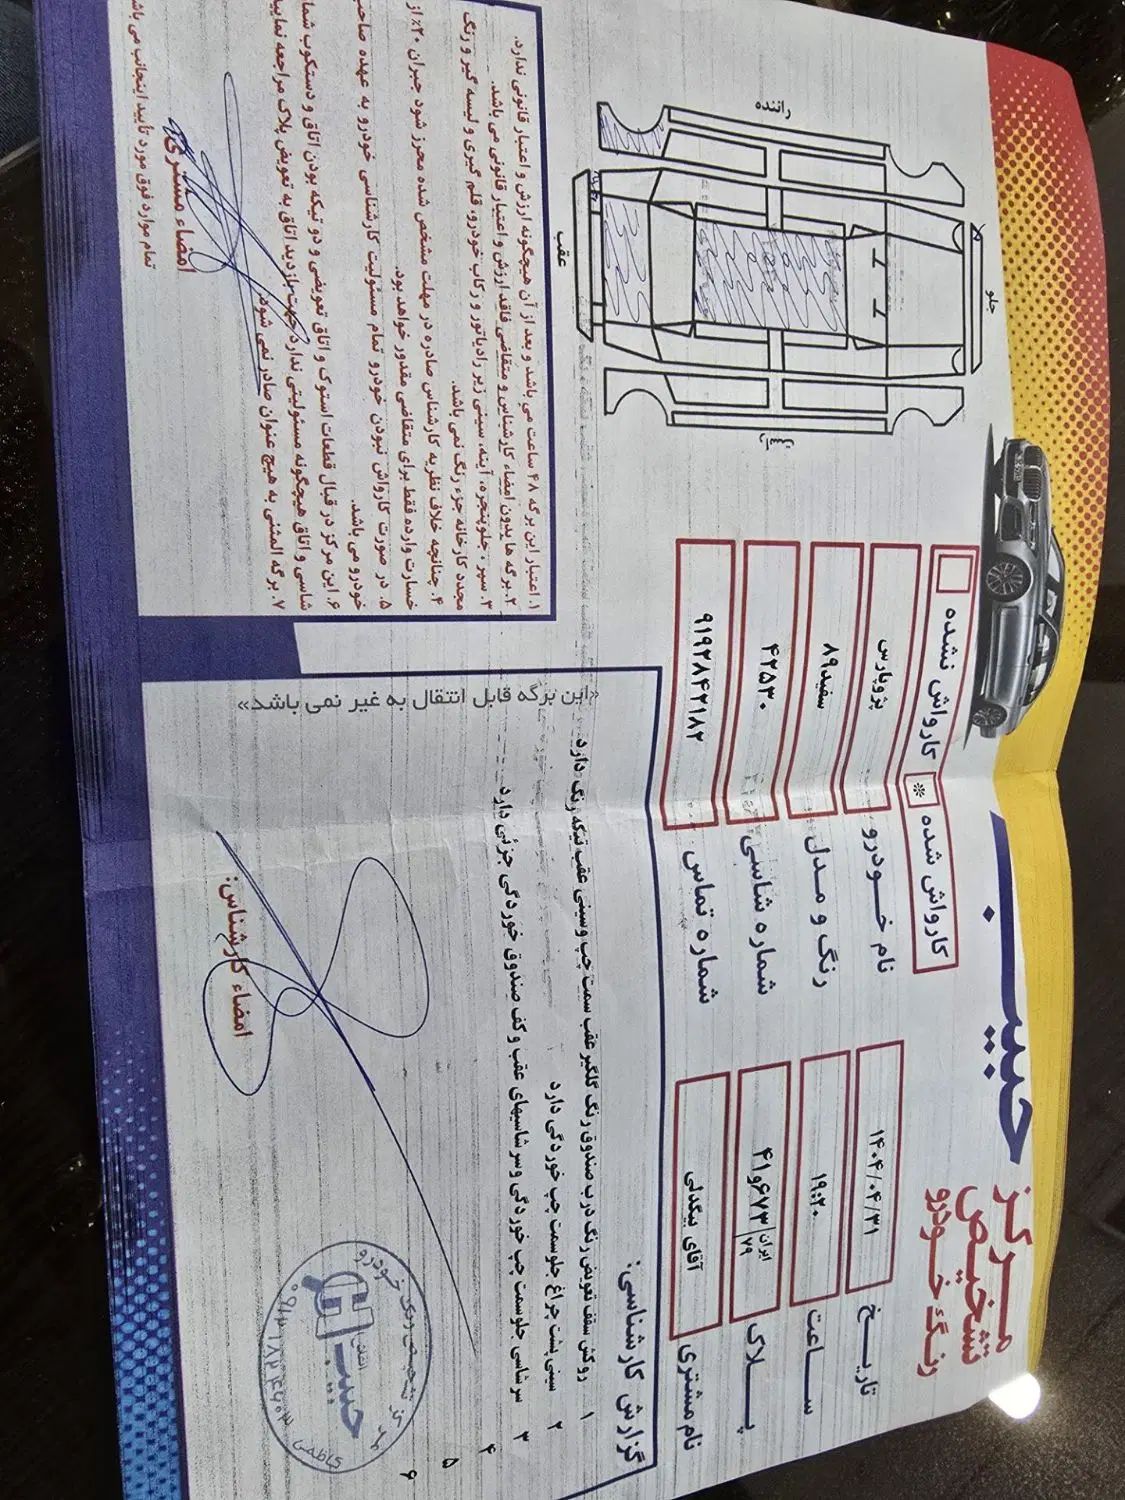 حبیب
مرکز
تشخیص
رنگ خودرو
کارواش شده * کارواش نشده
تاریخ ۱۴۰۴/۰۴/۳۱
ساعت ۱۹:۲۰
پلاک ۴۱و۶۷۳ ایران ۷۹
نام مشتری آقای بیگدلی
نام خودرو پژوپارس
رنگ و مدل سفید۸۹
شماره شاسی ۴۲۵۳۰
شماره تماس ۹۱۹۲۸۴۲۱۸۲
راننده
جلو
عقب
گزارش کارشناسی:
۱ روکش سقف تعویض رنگ درب صندوق رنگ گلگیر عقب سمت چپ وسینی عقب تیکه رنگ دارد
۲ سینی پشت چراغ جلوسمت چپ خوردگی دارد
۳ سرشاسی جلوسمت چپ خوردگی وسرشاسیهای عقب و کف صندوق خوردگی جزئی دارد
۴
۵
۶
امضاء کارشناس:
«این برگه قابل انتقال به غیر نمی باشد»
۱. اعتبار این برگه ۴۸ ساعت می باشد و بعد از آن هیچگونه ارزش و اعتبار قانونی ندارد.
۲. برگه ها بدون امضاء کارشناس و متقاضی فاقد ارزش و اعتبار قانونی می باشد.
۳. سپر، جلوپنجره، آینه، سینی زیر رادیاتور و رکاب خودرو، قلم گیری و لیسه گیر و رنگ
مجدد کارخانه جزء رنگ نمی باشد.
۴. چنانچه خلاف نظریه کارشناس صادره در مهلت مشخص شده محرز شود جبران ۲۰٪ از
خسارت وارده فقط برای متقاضی مقدور خواهد بود.
۵. در صورت کارواش نبودن خودرو تمام مسئولیت کارشناسی خودرو به عهده صاحب
خودرو می باشد.
۶. این مرکز در قبال قطعات استوک و اتاق تعویضی و دو تیکه بودن اتاق و دستکوب شما
شاسی و اتاق هیچگونه مسئولیتی ندارد جهت بازدید اتاق به تعویض پلاک مراجعه نمایید
۷. برگه المثنی به هیچ عنوان صادر نمی شود.
امضاء مشتری:
تمام موارد فوق مورد تأیید اینجانب می باشد
مرکز تشخیص رنگ خودرو
حبیب